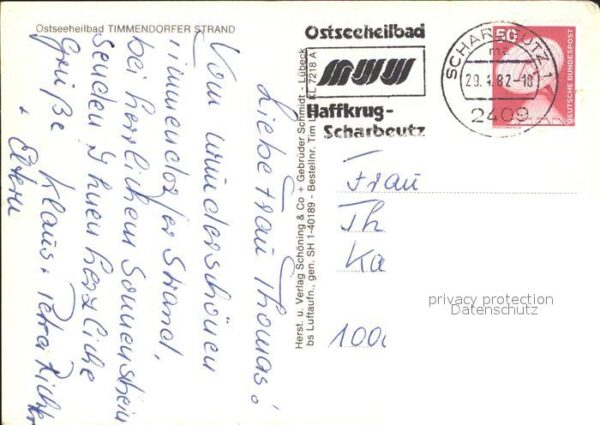 Ostseeheilbad TIMMENDORFER STRAND
Liebe Frau Thomas!
Vom wunderschönen
Timmendorfer Strand,
bei herrlichem Sonnenschein
senden Ihnen herzliche
Grüße Klaus, Petra Richter
+ Eltern
Herst. u. Verlag Schöning & Co + Gebrüder Schmidt - Lübeck
bs Luftaufn., gen. SH 1-40189 - Bestellnr. Tim L KL 7218 A
Ostseeheilbad
Haffkrug-
Scharbeutz
SCHARBEUTZ 1
29.4.82-18
2409
50
DEUTSCHE BUNDESPOST
Frau
Th
Ka
100
privacy protection
Datenschutz